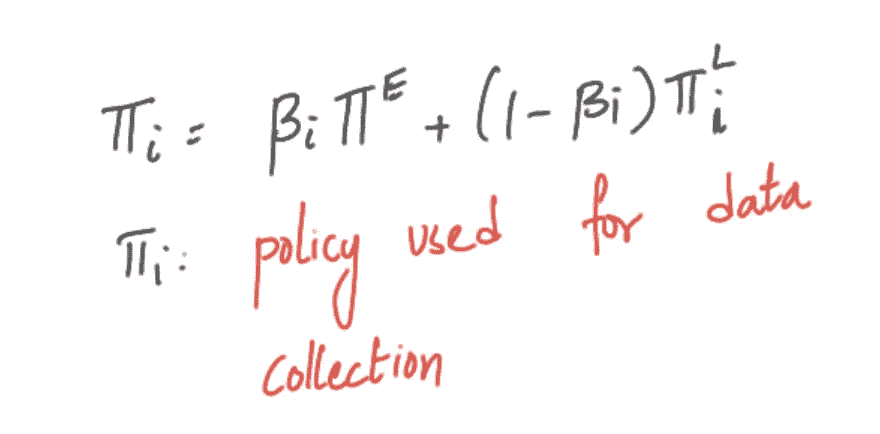 πᵢ = βᵢ πᴱ + (1 - βᵢ) πᵢᴸ
πᵢ: policy used for data
collection